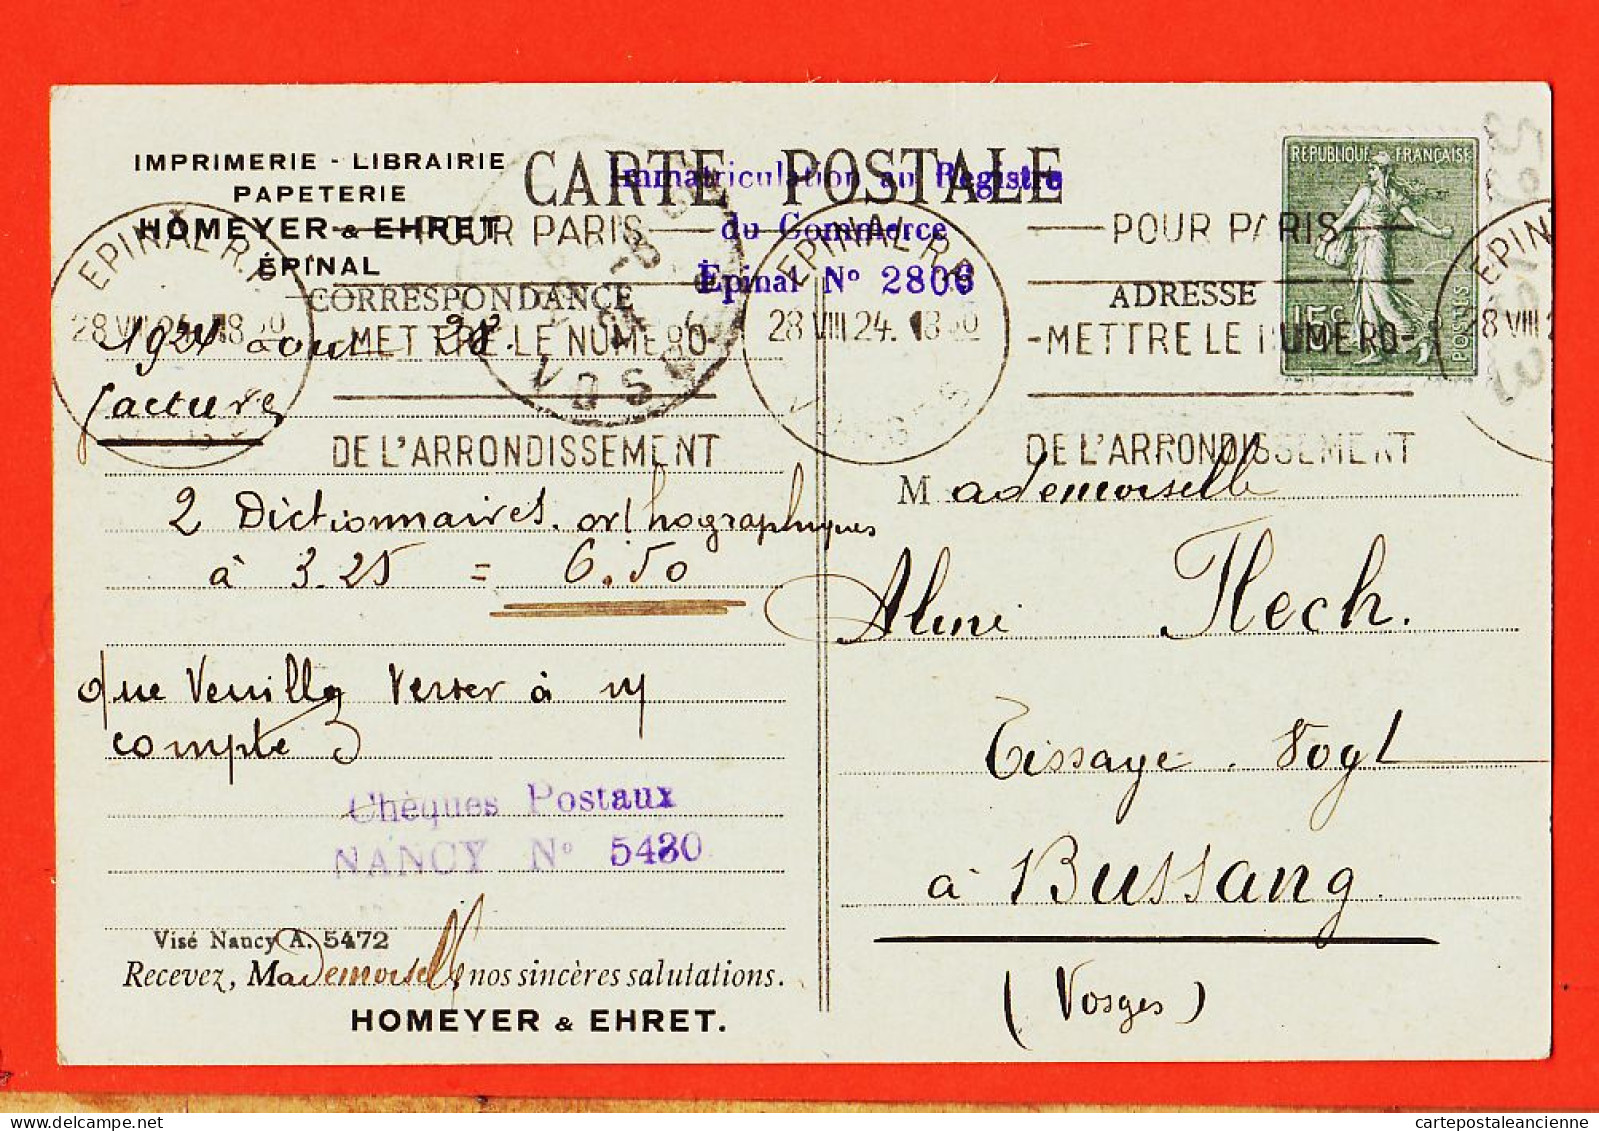 IMPRIMERIE - LIBRAIRIE
PAPETERIE
HOMEYER & EHRET
ÉPINAL
CARTE POSTALE
Immatriculation au Registre
du Commerce
Épinal N° 2806
RÉPUBLIQUE FRANÇAISE
15c
POSTES
EPINAL R.P.
28 VIII 24. 18 30
VOSGES
POUR PARIS
METTRE LE NUMERO
DE L'ARRONDISSEMENT
EPINAL R.P.
28 VIII 24. 18 30
VOSGES
POUR PARIS
METTRE LE NUMERO
DE L'ARRONDISSEMENT
EPIN
28 VIII 2
VOSGES
CORRESPONDANCE
ADRESSE
1924 aout 28.
facture
2 Dictionnaires orthographiques
à 3.25 = 6.50
que veuillez verser à m
compte
Chèques Postaux
NANCY N° 5430
Visé Nancy A. 5472
Recevez, Mademoiselle, nos sincères salutations.
HOMEYER & EHRET.
Mademoiselle
Aline Flech.
Tissage. Vogt
à Bussang
(Vosges)
cartepostaleancienne